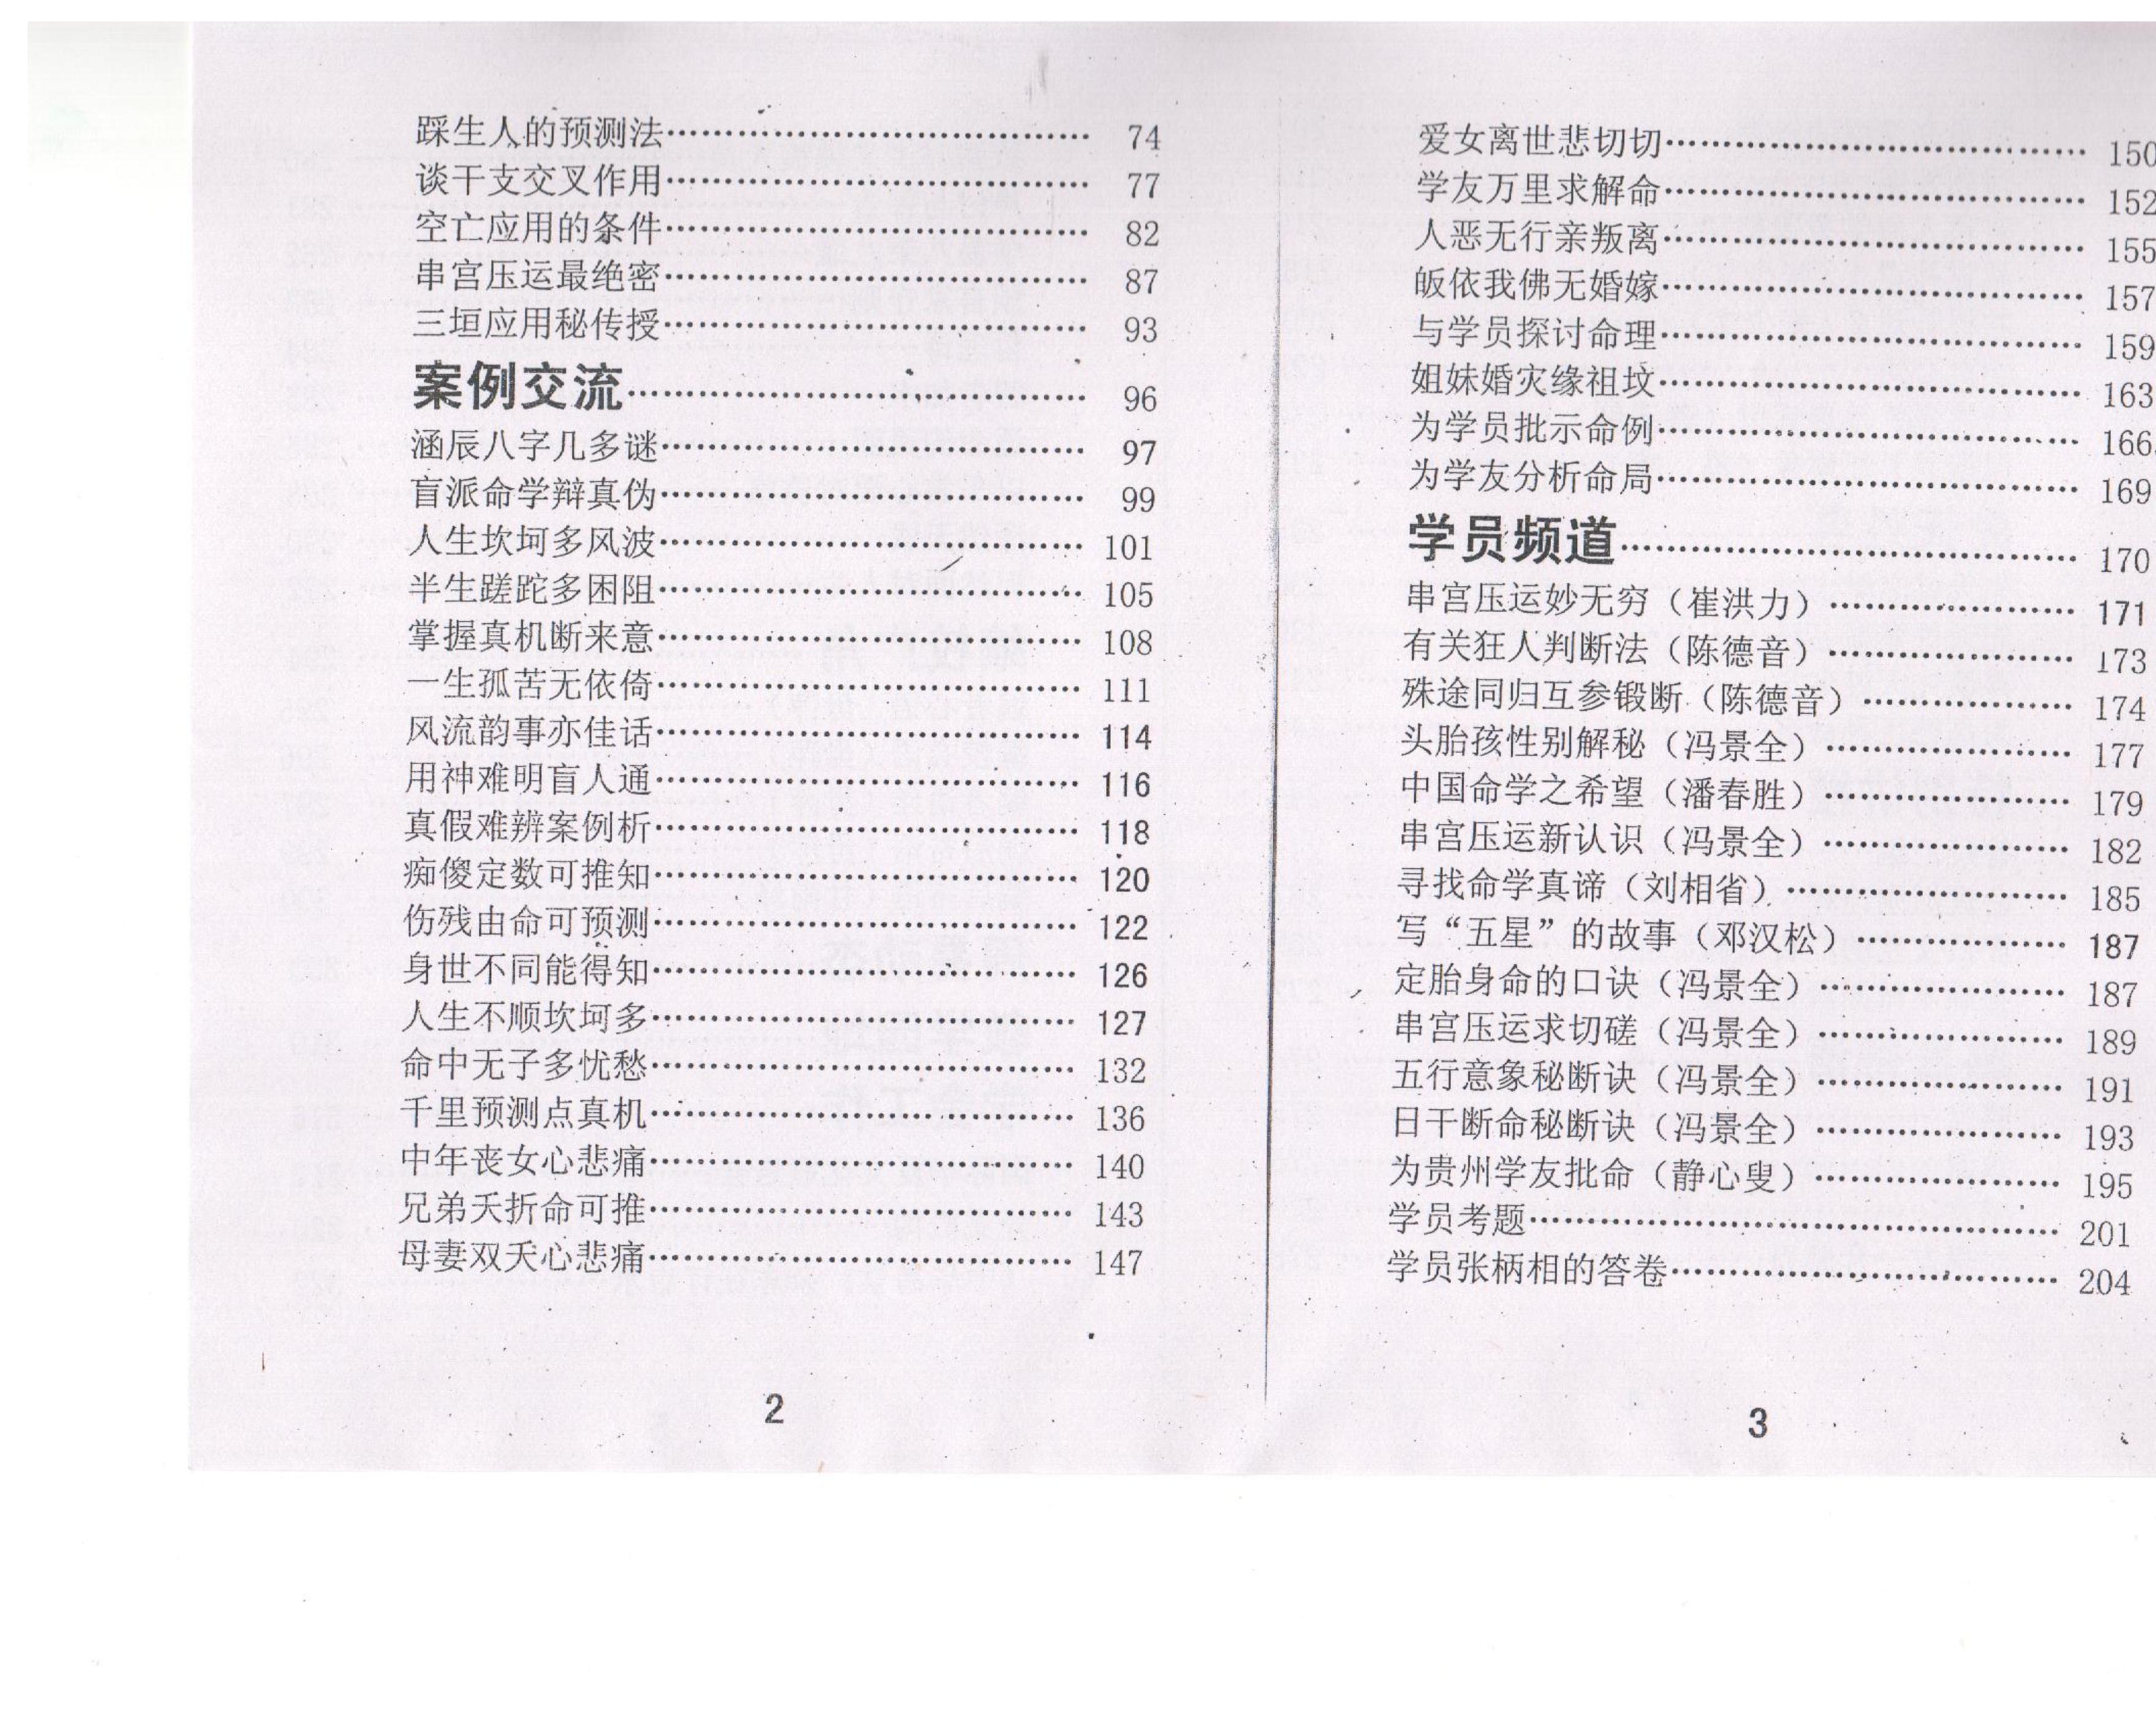 踩生人的预测法…………………………………… 74
谈干支交叉作用…………………………………… 77
空亡应用的条件…………………………………… 82
串宫压运最绝密…………………………………… 87
三垣应用秘传授…………………………………… 93
案例交流…………………………………… 96
涵辰八字几多谜…………………………………… 97
盲派命学辩真伪…………………………………… 99
人生坎坷多风波…………………………………… 101
半生蹉跎多困阻…………………………………… 105
掌握真机断来意…………………………………… 108
一生孤苦无依倚…………………………………… 111
风流韵事亦佳话…………………………………… 114
用神难明盲人通…………………………………… 116
真假难辨案例析…………………………………… 118
痴傻定数可推知…………………………………… 120
伤残由命可预测…………………………………… 122
身世不同能得知…………………………………… 126
人生不顺坎坷多…………………………………… 127
命中无子多忧愁…………………………………… 132
千里预测点真机…………………………………… 136
中年丧女心悲痛…………………………………… 140
兄弟夭折命可推…………………………………… 143
母妻双夭心悲痛…………………………………… 147
2
爱女离世悲切切…………………………………… 150
学友万里求解命…………………………………… 152
人恶无行亲叛离…………………………………… 155
皈依我佛无婚嫁…………………………………… 157
与学员探讨命理…………………………………… 159
姐妹婚灾缘祖坟…………………………………… 163
为学员批示命例…………………………………… 166
为学友分析命局…………………………………… 169
学员频道…………………………………… 170
串宫压运妙无穷（崔洪力）………………… 171
有关狂人判断法（陈德音）………………… 173
殊途同归互参锻断（陈德音）……………… 174
头胎孩性别解秘（冯景全）………………… 177
中国命学之希望（潘春胜）………………… 179
串宫压运新认识（冯景全）………………… 182
寻找命学真谛（刘相省）…………………… 185
写“五星”的故事（邓汉松）……………… 187
定胎身命的口诀（冯景全）………………… 187
串宫压运求切磋（冯景全）………………… 189
五行意象秘断诀（冯景全）………………… 191
日干断命秘断诀（冯景全）………………… 193
为贵州学友批命（静心叟）………………… 195
学员考题…………………………………… 201
学员张柄相的答卷……………………………… 204
3